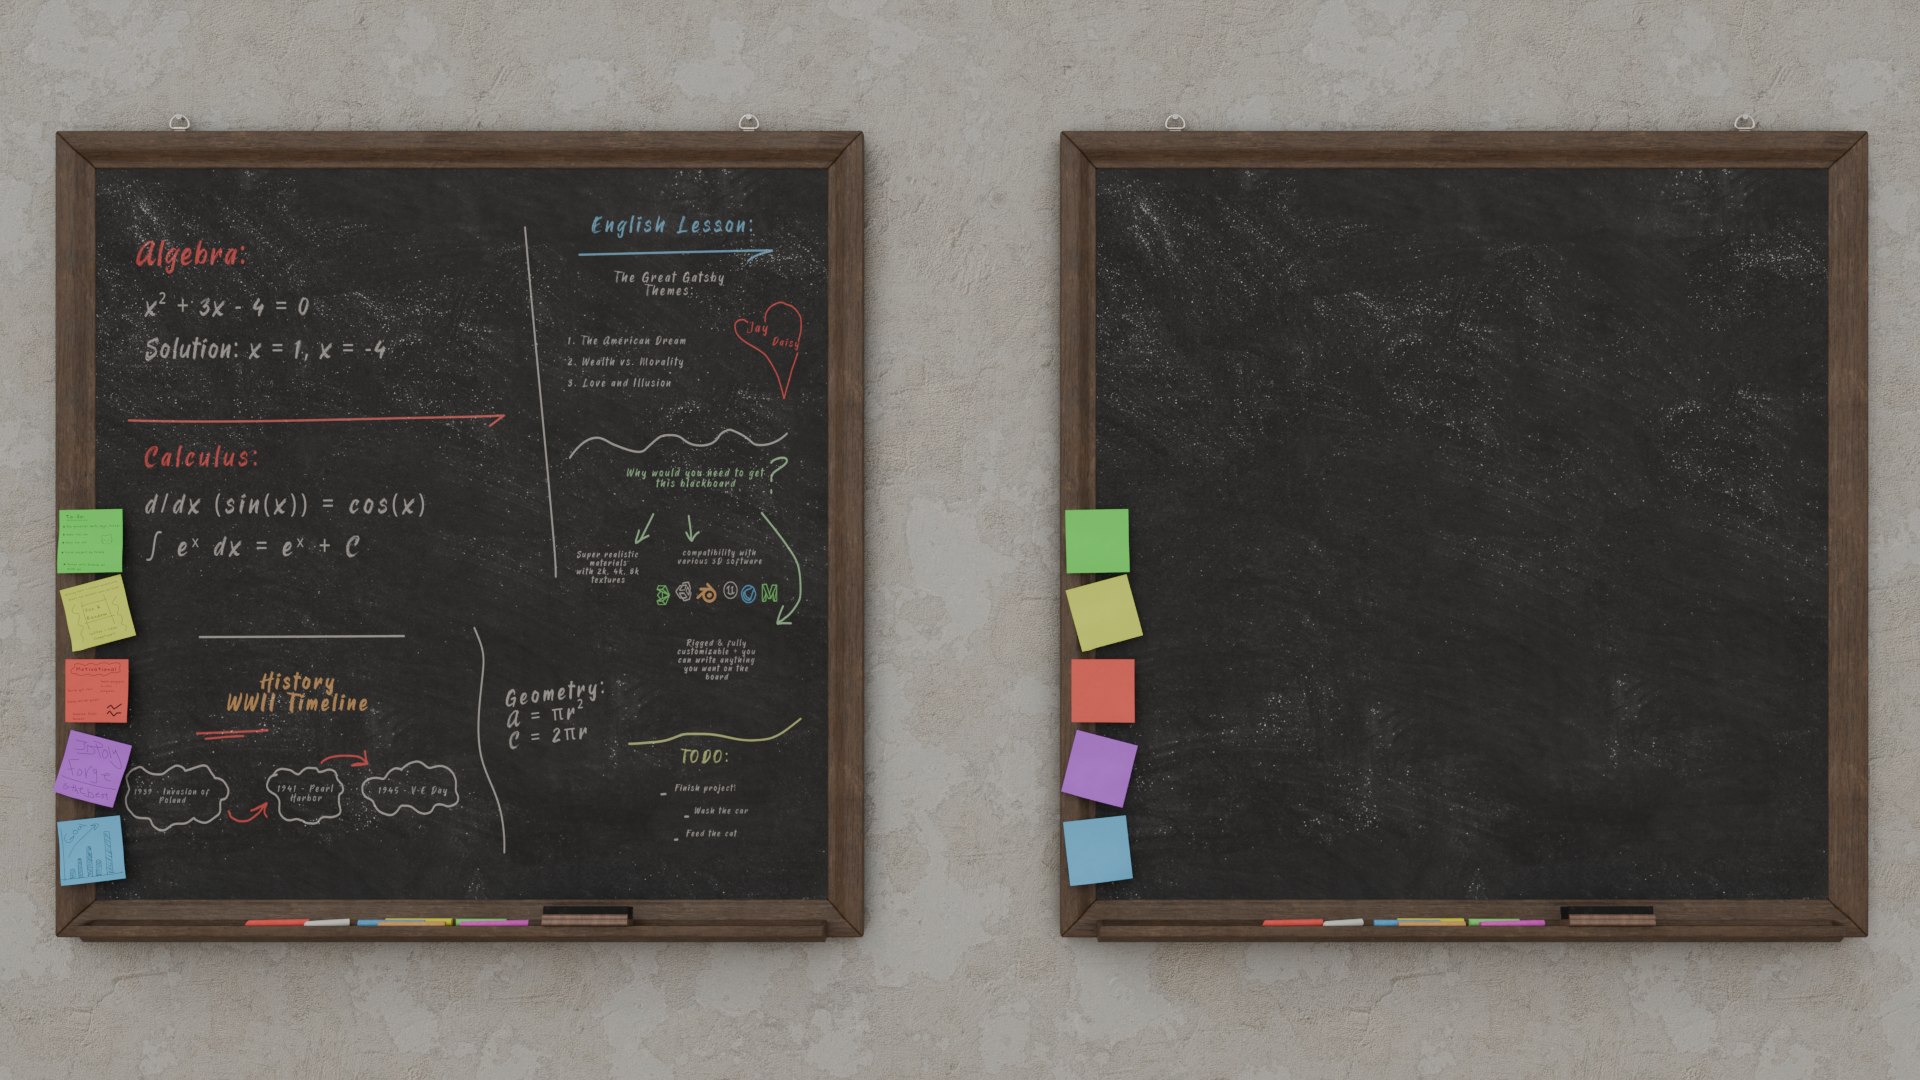 Algebra:
x² + 3x - 4 = 0
Solution: x = 1, x = -4
Calculus:
d/dx (sin(x)) = cos(x)
∫ eˣ dx = eˣ + C
History
WWII Timeline
1939 - Invasion of
Poland
1941 - Pearl
Harbor
1945 - V-E Day
English Lesson:
The Great Gatsby
Themes:
1. The American Dream
2. Wealth vs. Morality
3. Love and Illusion
Jay
Daisy
Why would you need to get
this blackboard
?
Super realistic
materials
with 2k, 4k, 8k
textures
compatibility with
various 3D software
Rigged & fully
customizable - you
can write anything
you want on the
board
Geometry:
A = πr²
C = 2πr
TODO:
- Finish project!
- Wash the car
- Feed the cat
To do:
Motivational
Forge
is the best